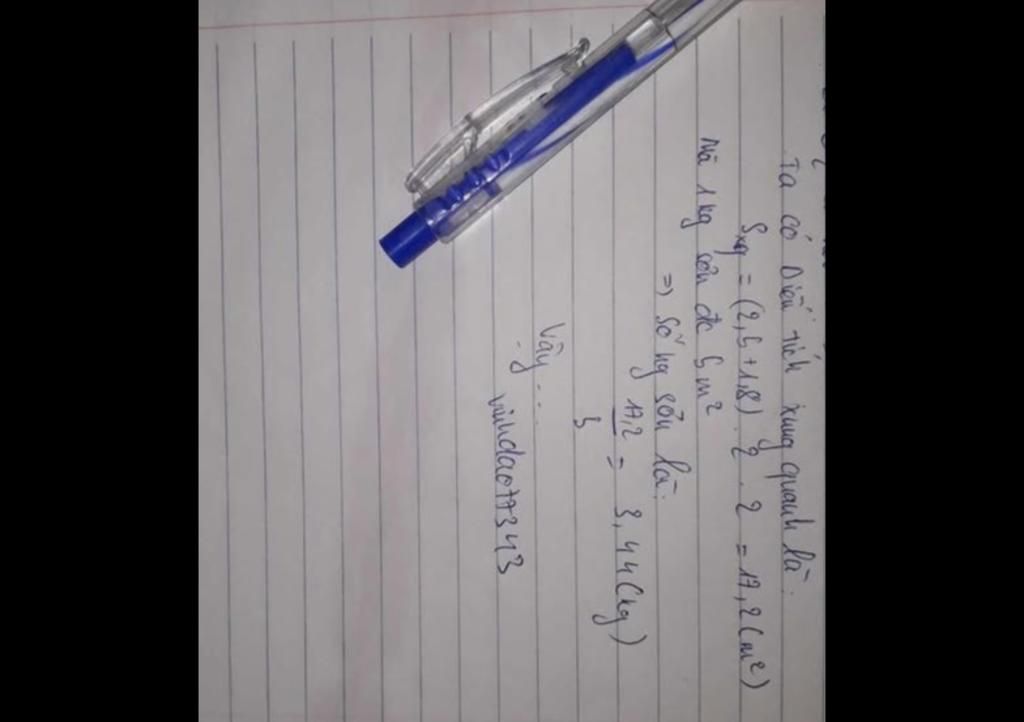 Ta có Diện tích xung quanh là:
Sxq = (2,5 + 1,8) . 2 . 2 = 17,2 (m²)
Mà 1 kg sơn đc 5 m²
=> Số kg sơn là:
17,2 / 5 = 3,44 (kg)
Vậy ....
vinhdao77343